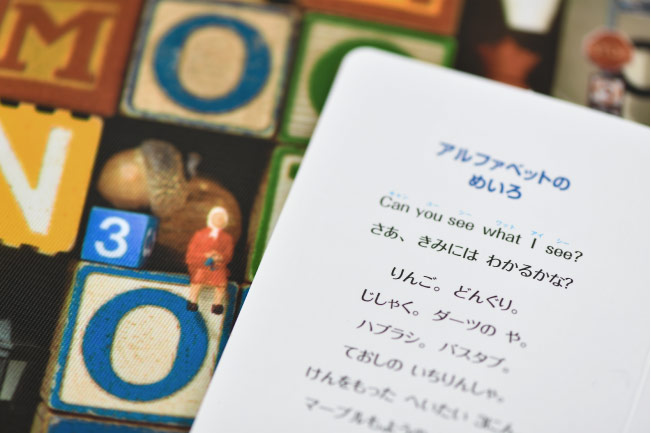 M
O
N
3
O
アルファベットの
めいろ
キャン ユー シー ワット アイ シー
Can you see what I see?
さあ、きみには わかるかな?
りんご。どんぐり。
じしゃく。ダーツの や。
ハブラシ。バスタブ。
ておしの いちりんしゃ。
けんをもった へいたい 3にん
マーブルもよう